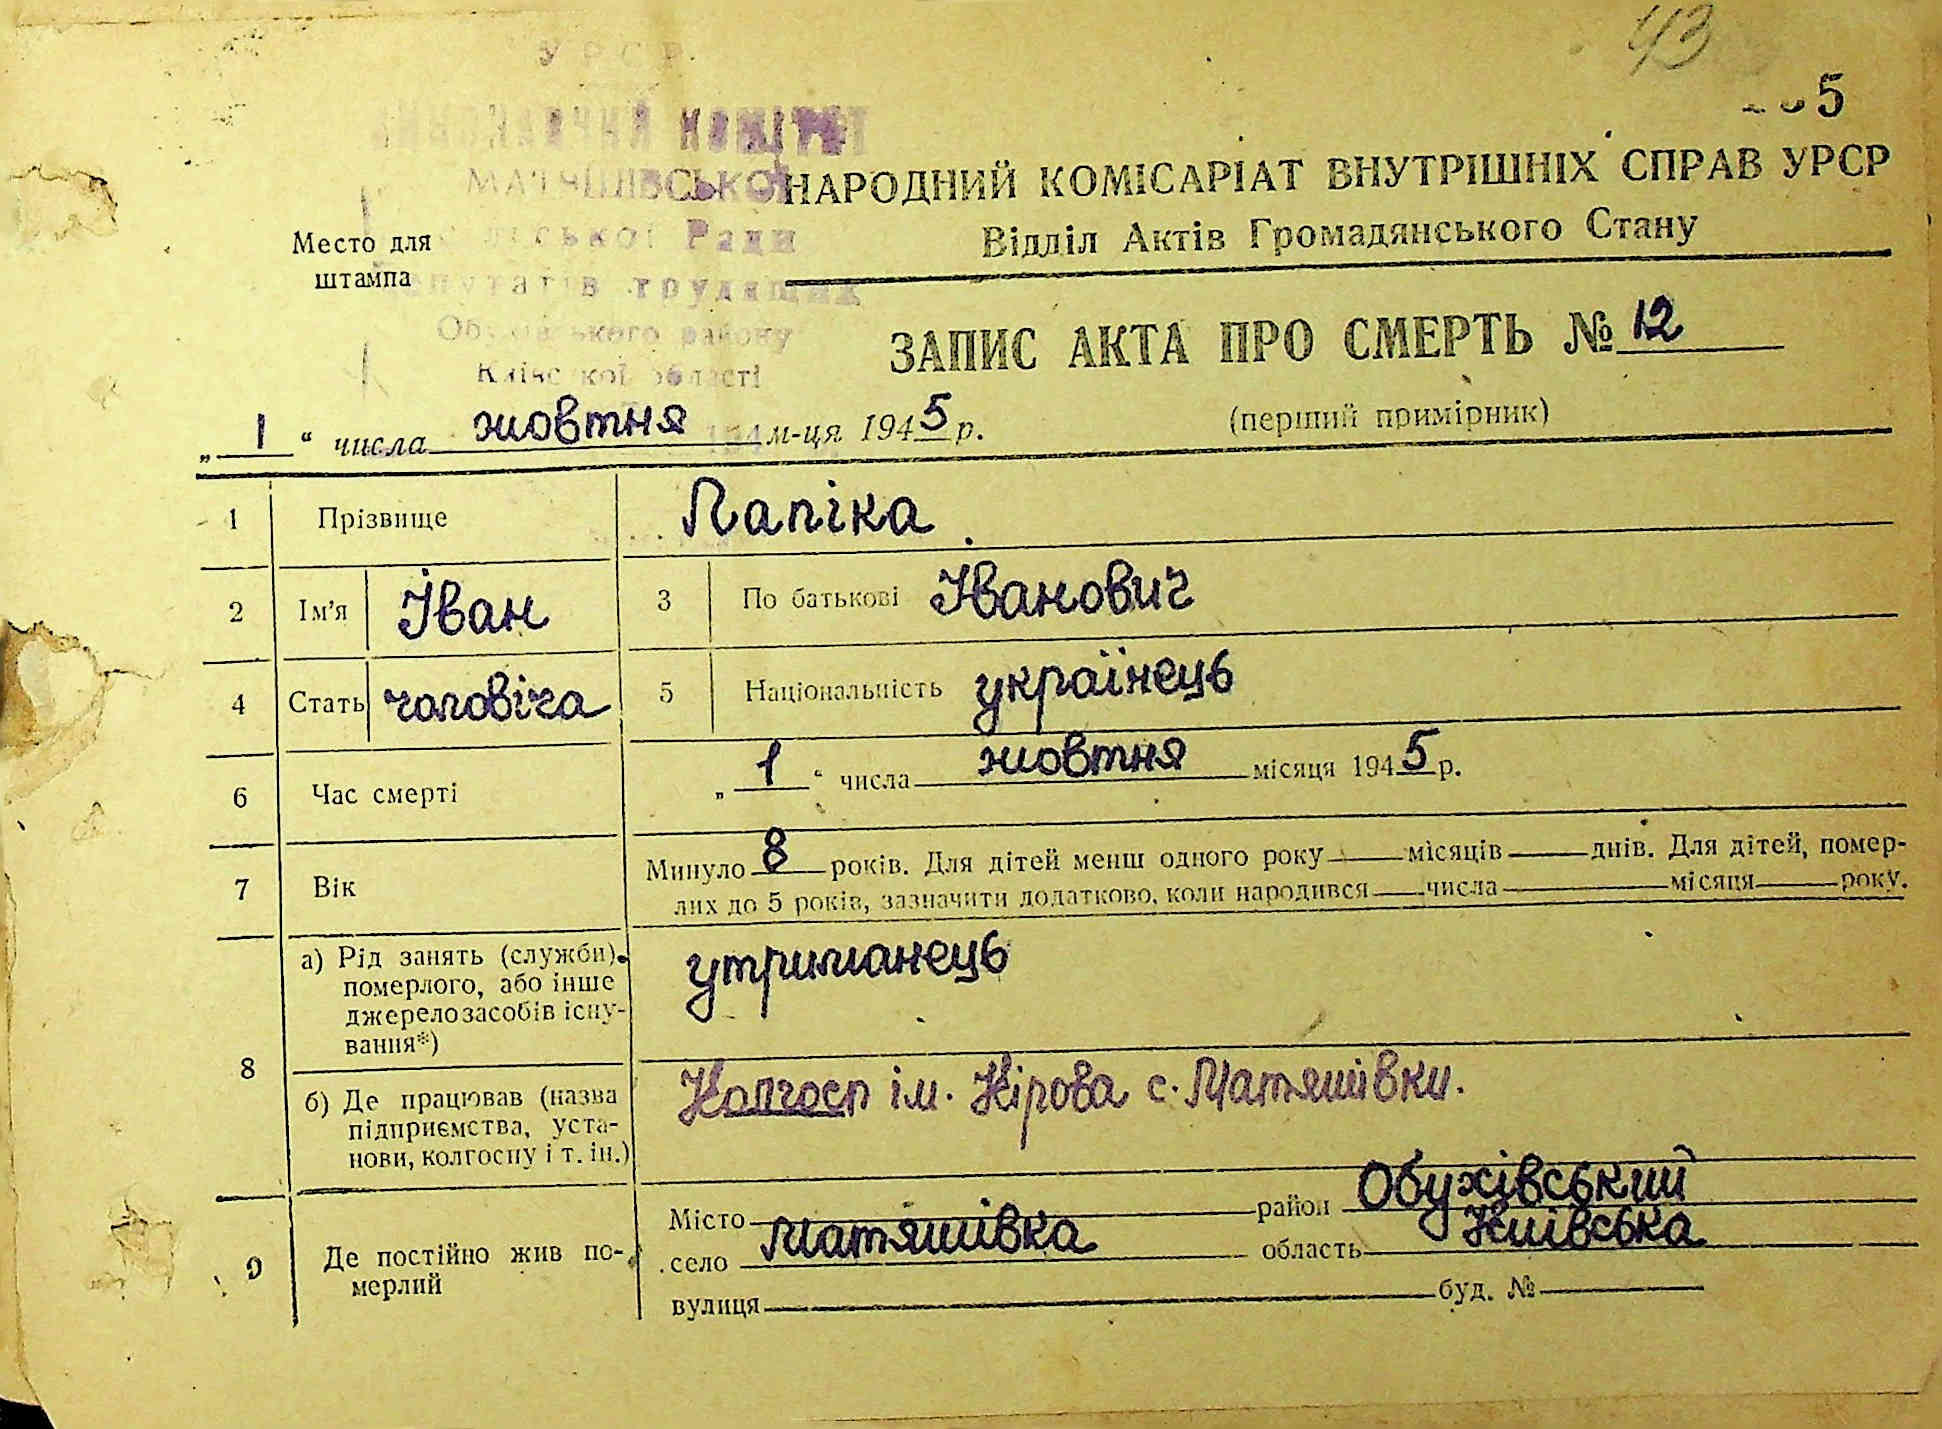 43
5
УРСР
ВИКОНАВЧИЙ КОМІТЕТ
МАТЯШІВСЬКОЇ
сільської Ради
депутатів трудящих
Обухівського району
Київської області
Место для
штампа
НАРОДНИЙ КОМІСАРІАТ ВНУТРІШНІХ СПРАВ УРСР
Відділ Актів Громадянського Стану
ЗАПИС АКТА ПРО СМЕРТЬ № 12
„ 1 “ числа жовтня м-ця 1945 р.
(перший примірник)
1 Прізвище Лапіка
2 Ім'я Іван 3 По батькові Іванович
4 Стать чоловіча 5 Національність українець
6 Час смерті „ 1 “ числа жовтня місяця 1945 р.
7 Вік Минуло 8 років. Для дітей менш одного року місяців днів. Для дітей, помер-
лих до 5 років, зазначити додатково, коли народився числа місяця року.
8 а) Рід занять (служби) утриманець
померлого, або інше
джерело засобів існу-
вання*)
б) Де працював (назва Колгосп ім. Кірова с. Матяшівки.
підприємства, уста-
нови, колгоспу і т. ін.)
9 Де постійно жив по-
мерлий
Місто район Обухівський
село Матяшівка область Київська
вулиця буд. №